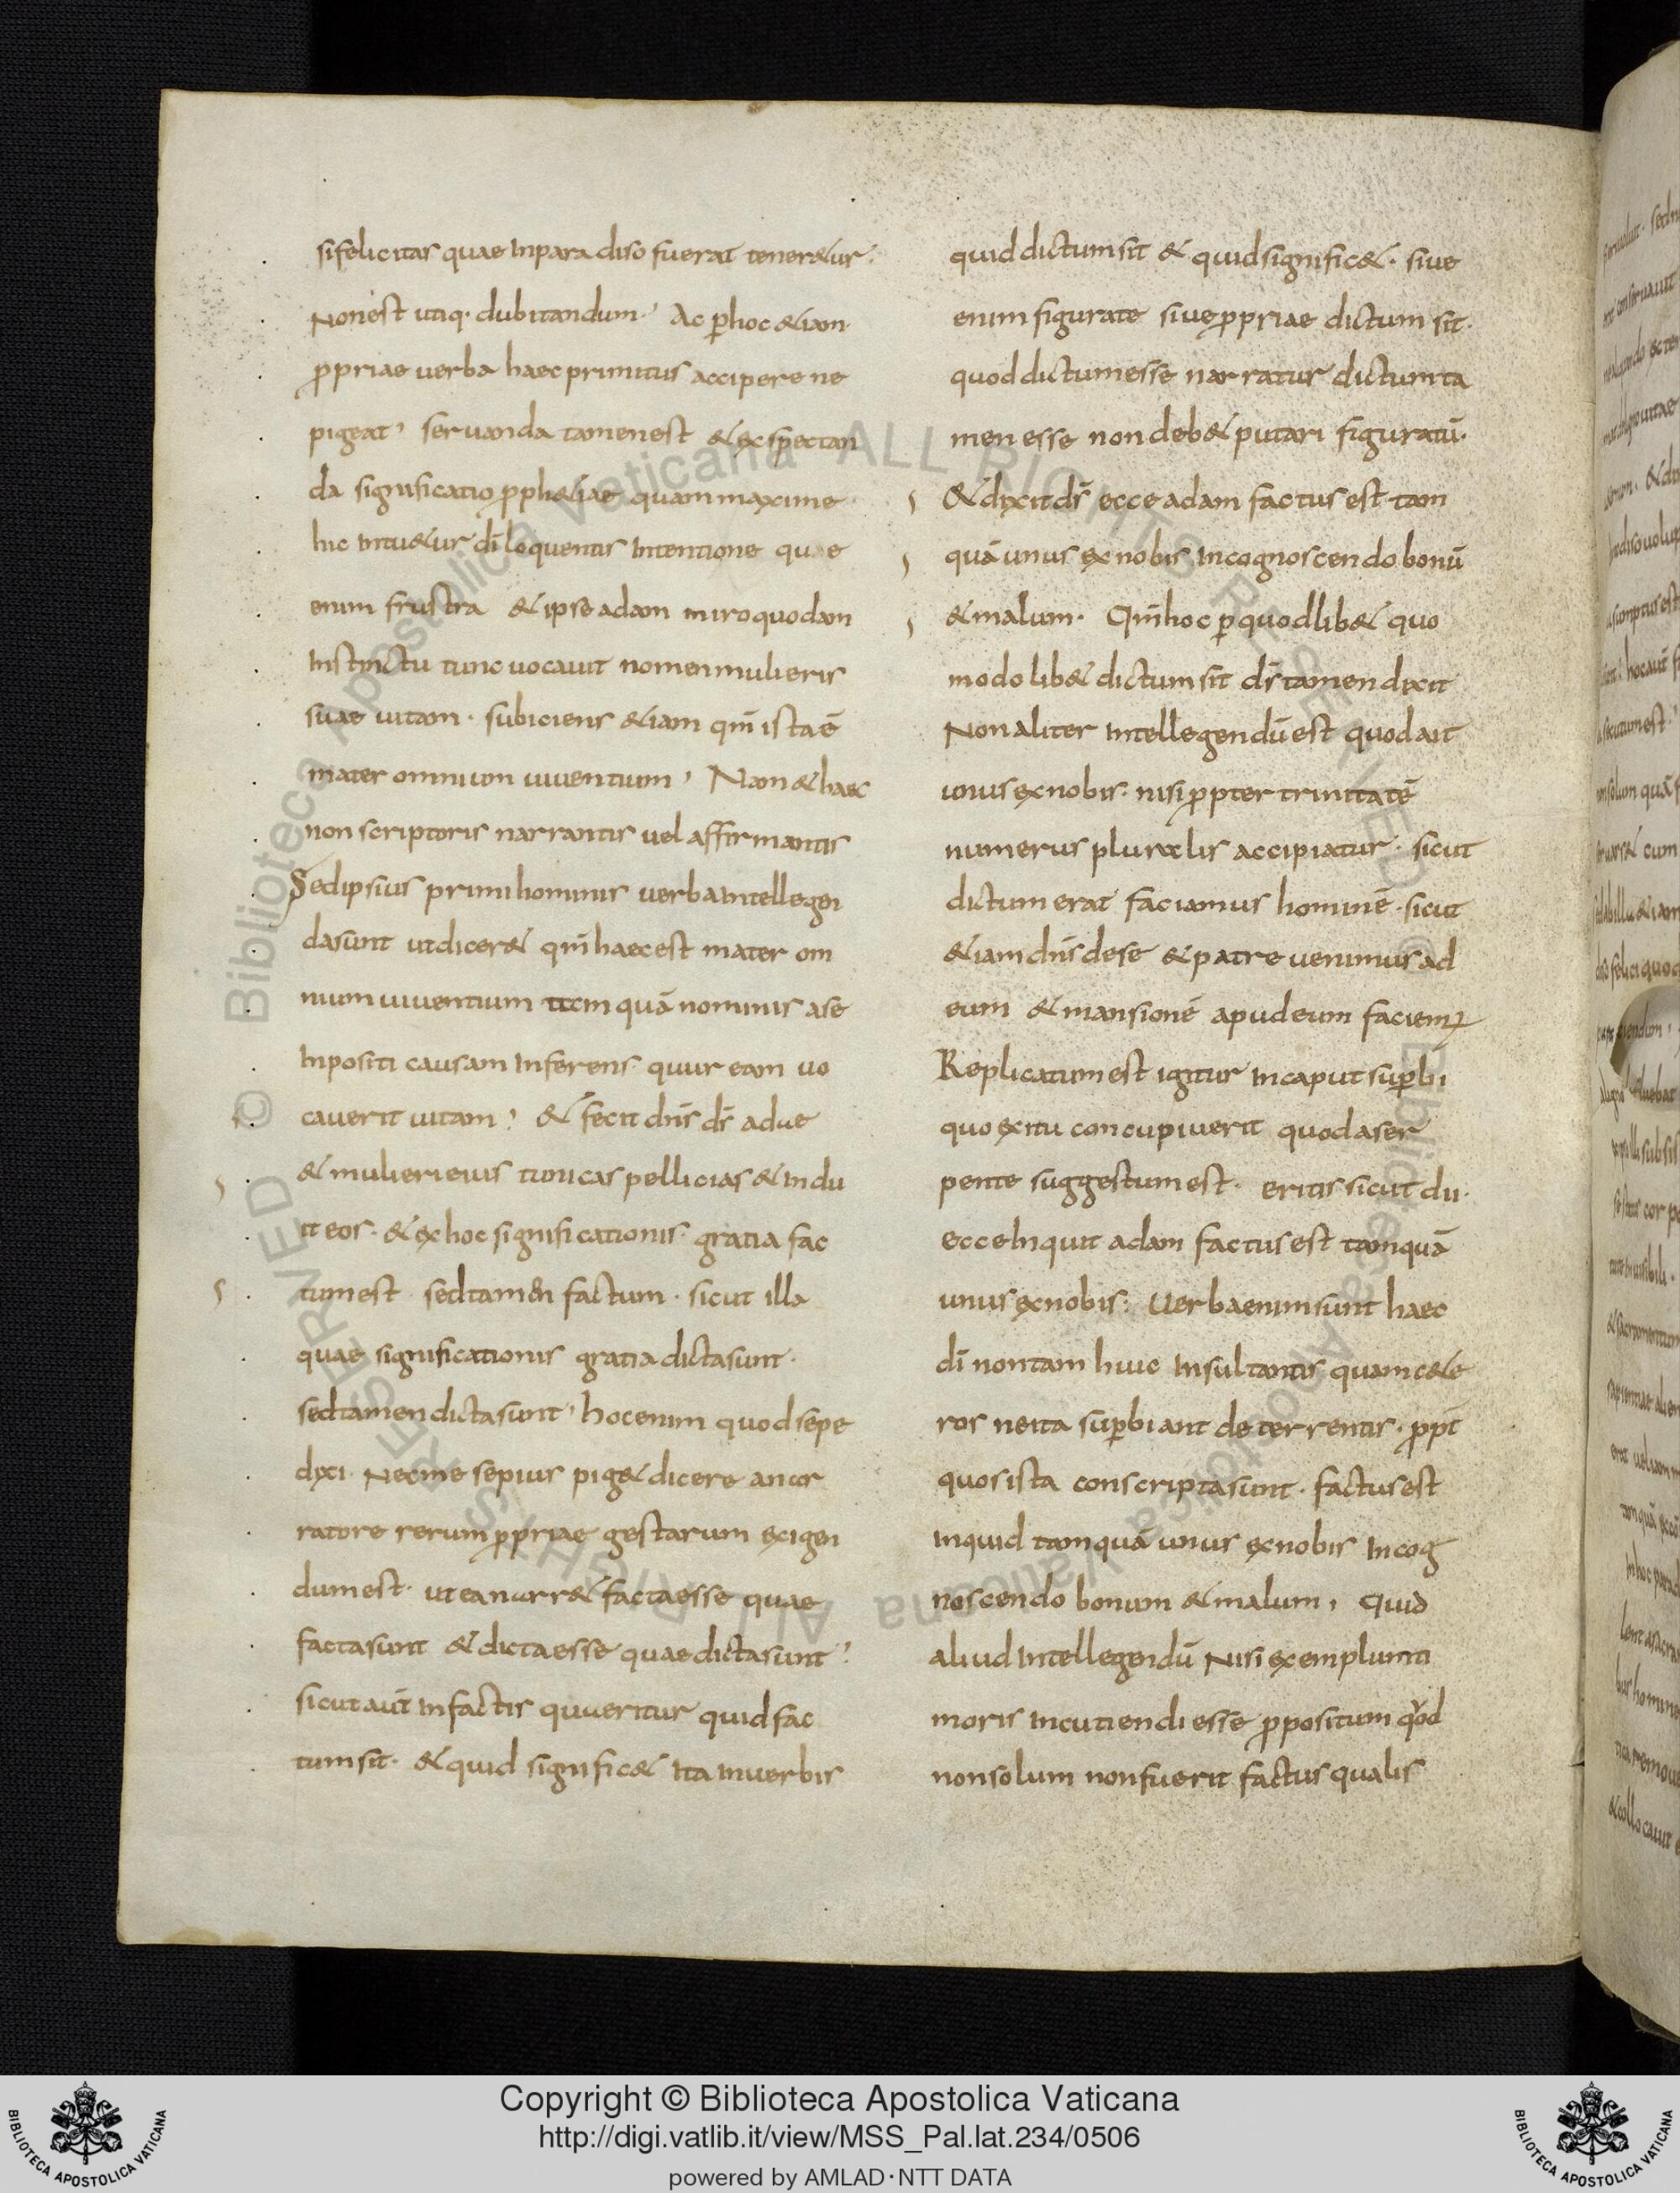 sifelicitas quae inparadiso fuerat teneretur.
Non est utiq· dubitandum· Ac phoc &iam·
ppriae uerba haec primitus accipere ne
pigeat, seruanda tamenest &exspectan
da significatio pph&iae quam maxime
hic intu&ur dī loquentis intentione quae
enim frustra &ipse adam miro quodam
instinctu tunc uocauit nomen mulieris
suae uitam· subiciens &iam qm̄ ista ē
mater omnium uiuentium, Nam &haec
non scriptoris narrantis uel affirmantis
Sed ipsius primi hominis uerba intellegen
da sunt ut dicer& qm̄ haec est mater om
nium uiuentium tamquā nominis a se
inpositi causam inferens· quur eam uo
cauerit uitam, & fecit dn̄s d̄s adae
&mulieri eius tunicas pellicias &indu
it eos· &ex hoc significationis· gratia fac
tum est sed tamen factum· sicut illa
quae significationis gratia dicta sunt·
sed tamen dicta sunt, hoc enim quod sepe
dixi· Nec me sepius pig& dicere a nar
ratore rerum ppriae gestarum exigen
dum est· ut ea narr& facta esse quae
facta sunt &dicta esse quae dicta sunt,
sicut aut̄ in factis quaeritur quid fac
tum sit· &quid signific& ita in uerbis
quid dictum sit & quid signific&· siue
enim figurate siue ppriae dictum sit·
quod dictum esse narratur dictum ta
men esse non deb& putari figuratū·
&dixit d̄s ecce adam factus est tam
quā unus ex nobis in cognoscendo bonū
&malum· Qm̄ hoc p quodlib& quo
modo lib& dictum sit d̄s tamen dixit
Non aliter intellegendū est quod ait
unus ex nobis· nisi ppter trinitatē
numerus pluralis accipiatur· sicut
dictum erat faciamus hominē· sicut
&iam dn̄s de se &patre uenimus ad
eum &mansionē apud eum faciem;
Replicatum est igitur in caput supbi
quo exitu concupiuerit quod a ser
pente suggestum est· eritis sicut dii·
ecce inquit adam factus est tamquā
unus ex nobis: Uerba enim sunt haec
dī non tam huic insultantis quam c&e
ros ne ita supbiant deterrentis· ppt̄
quos ista conscripta sunt· factus est
inquid tamquā unus ex nobis in cog
noscendo bonum &malum, Quid
aliud intellegendū Nisi exemplum ti
moris incutiendi esse ppositum qd
non solum non fuerit factus qualis
Copyright © Biblioteca Apostolica Vaticana
http://digi.vatlib.it/view/MSS_Pal.lat.234/0506
powered by AMLAD·NTT DATA